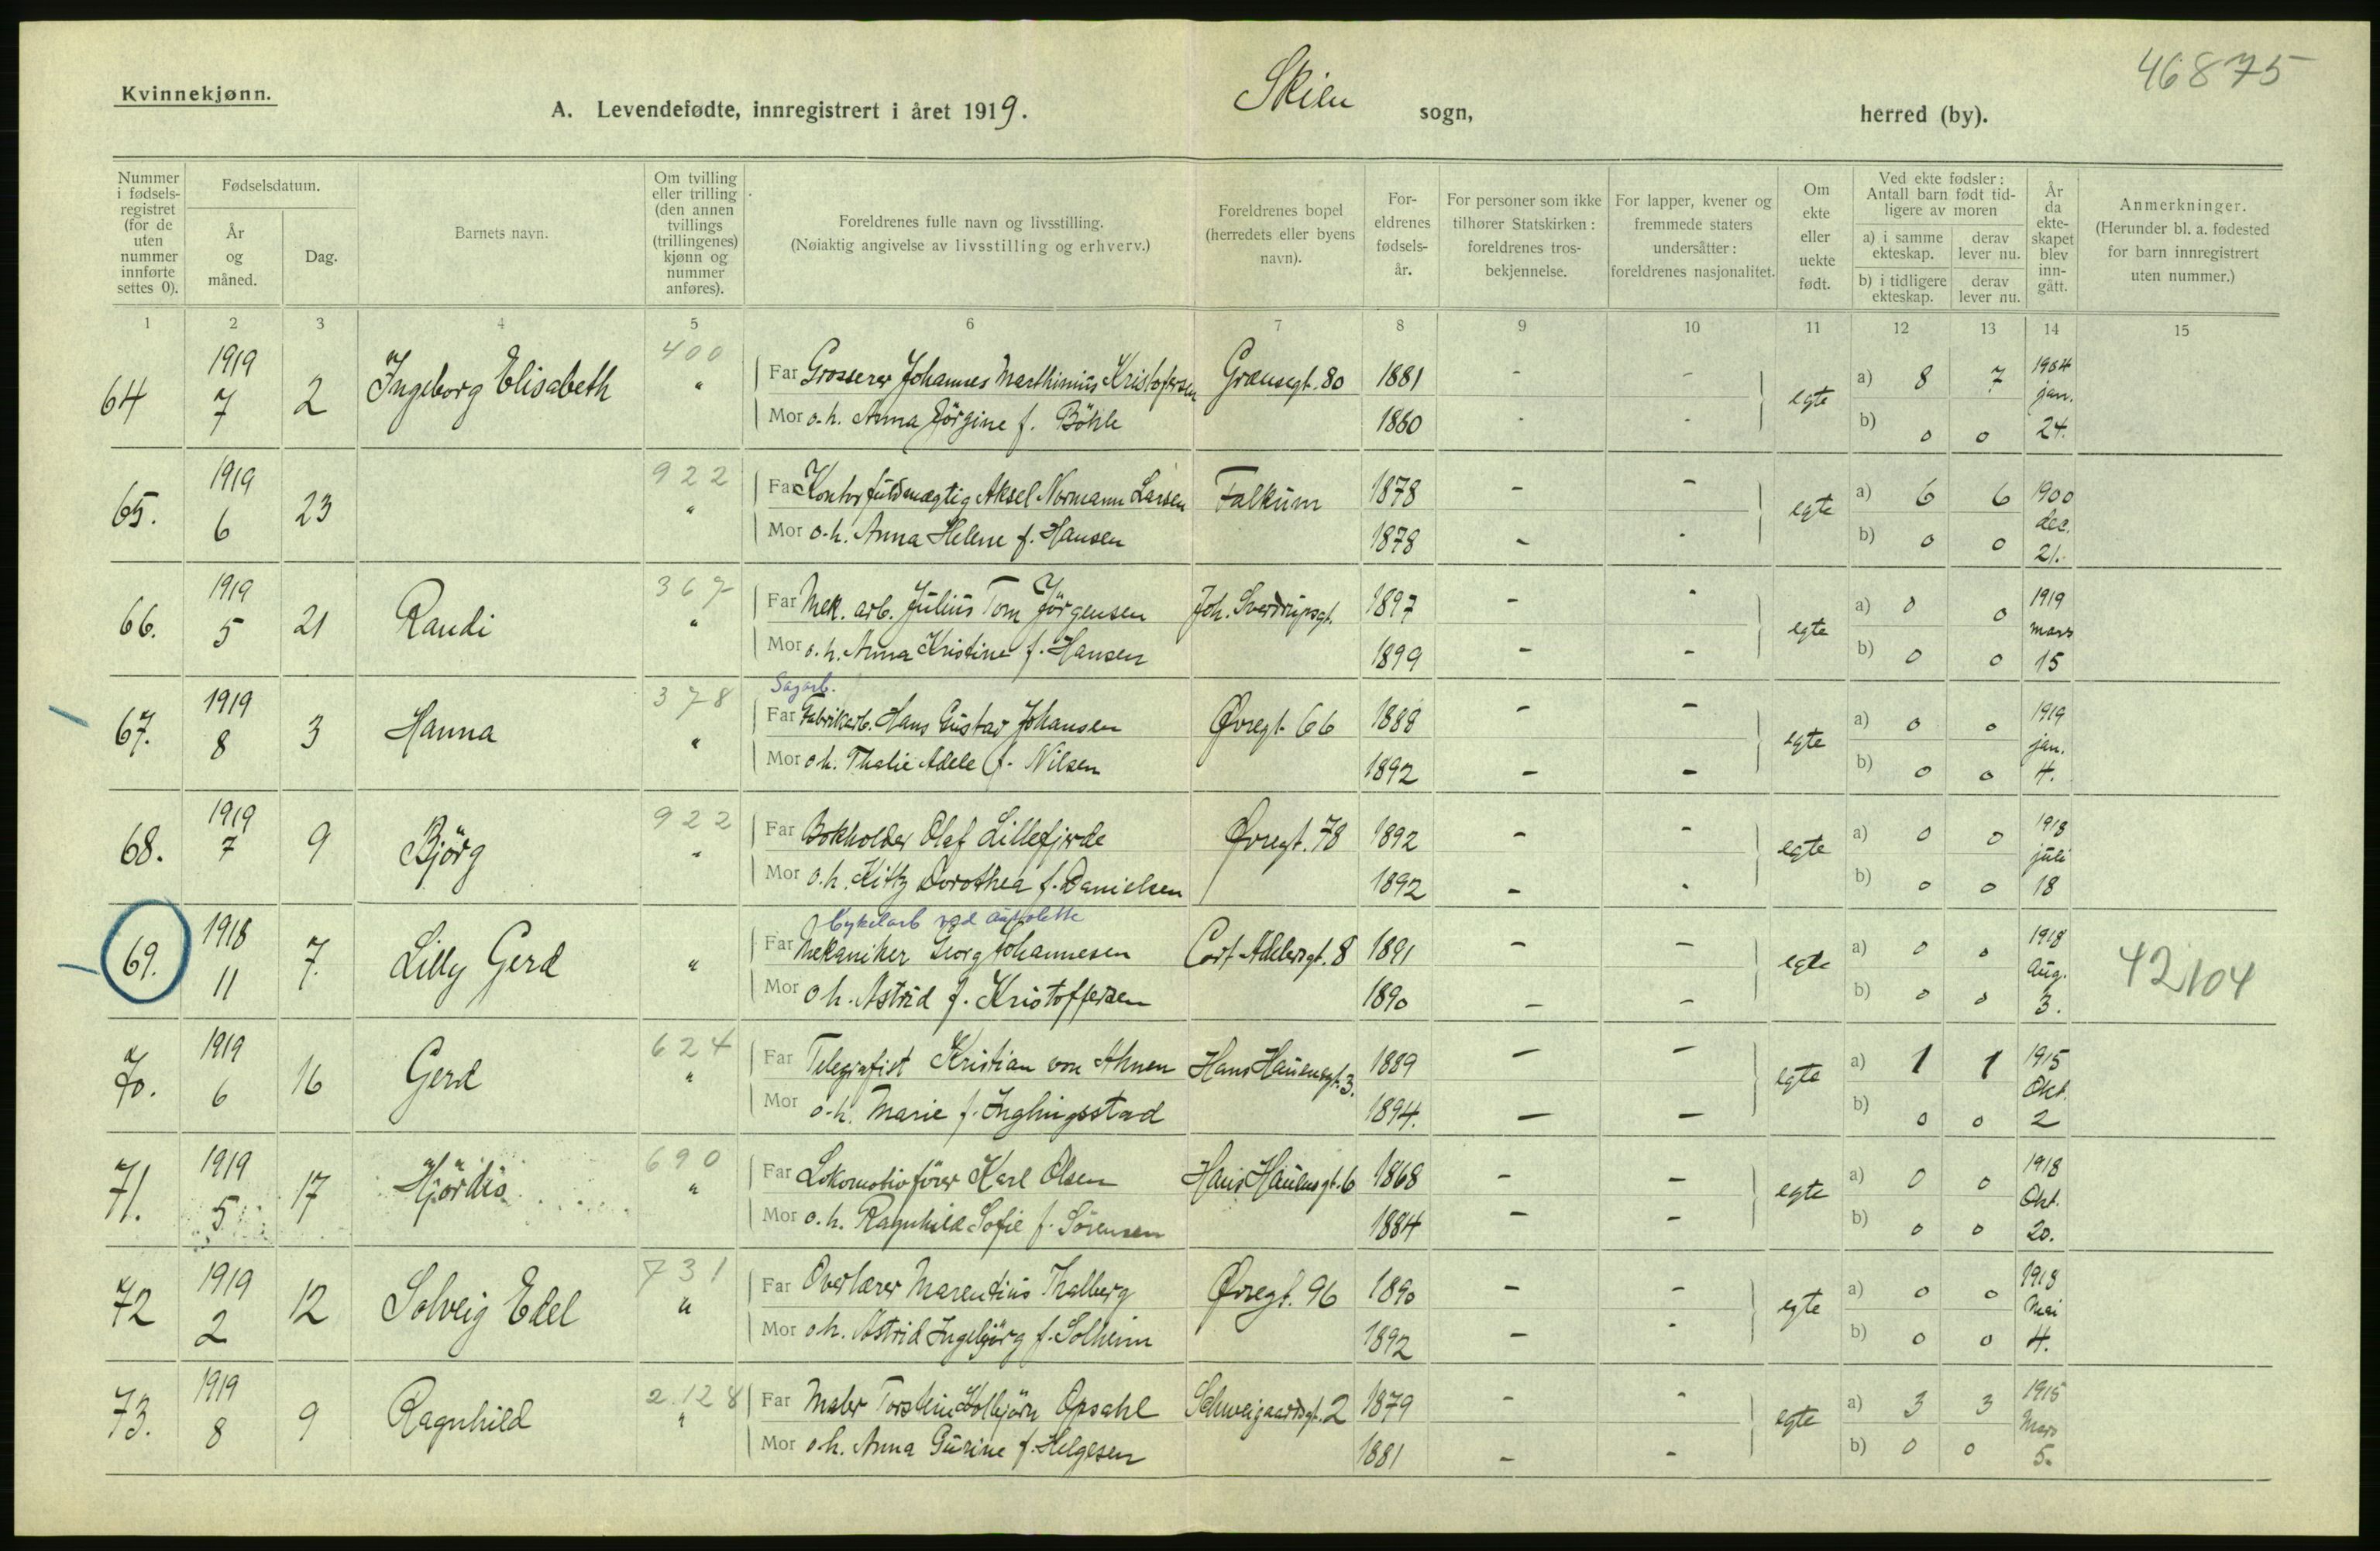 46875
Kvinnekjønn.
A. Levendefødte, innregistrert i året 1919. Skien sogn, herred (by).
Nummer i fødsels-registret (for de uten nummer innførte settes 0).
Fødselsdatum.
År og måned.
Dag.
Barnets navn.
Om tvilling eller trilling (den annen tvillings (trillingenes) kjønn og nummer anføres).
Foreldrenes fulle navn og livsstilling.
(Nøiaktig angivelse av livsstilling og erhverv.)
Foreldrenes bopel (herredets eller byens navn).
For-eldrenes fødsels-år.
For personer som ikke tilhører Statskirken: foreldrenes tros-bekjennelse.
For lapper, kvener og fremmede staters undersåtter: foreldrenes nasjonalitet.
Om ekte eller uekte født.
Ved ekte fødsler: Antall barn født tid-ligere av moren
a) i samme ekteskap. derav lever nu.
b) i tidligere ekteskap. derav lever nu.
År da ekte-skapet blev inn-gått.
Anmerkninger.
(Herunder bl. a. fødested for barn innregistrert uten nummer.)
1 2 3 4 5 6 7 8 9 10 11 12 13 14 15
64 1919 7 2 Ingeborg Elisabeth 400 "
Far Grosserer Johannes Marthinius Kristofersen Grænsegt. 80 1881 - - egte a) 8 7 1904 jan. 24.
Mor o.h. Anna Jörgine f. Böhle 1880 - - b) 0 0
65. 1919 6 23 922 "
Far Kontorfuldmægtig Aksel Normann Larsen Falkum 1878 - - egte a) 6 6 1900 dec. 21.
Mor o.h. Anna Helene f. Hansen 1878 - - b) 0 0
66. 1919 5 21 Randi 367 "
Far Mek. arb. Julius Tom Jörgensen Joh. Sverdrupsgt. 1897 - - egte a) 0 0 1919 mars 15
Mor o.h. Anna Kristine f. Hansen 1899 - - b) 0 0
67. 1919 8 3 Hanna 378 "
Sagarb.
Far Fabrikarb. Hans Gustav Johansen Øvregt. 66 1888 - - egte a) 0 0 1919 jan. 4.
Mor o.h. Thalie Adele f. Nilsen 1892 - - b) 0 0
68. 1919 7 9 Björg 922 "
Far Bokholder Olaf Lillefjerde Øvregt. 78 1892 - - egte a) 0 0 1918 juli 18
Mor o.h. Kitty Dorothea f. Danielsen 1892 - - b) 0 0
69. 1918 11 7. Lilly Gerd "
Cykelarb ved
Far Mekaniker Georg Johannesen Cort Adelersgt. 8 1891 - - egte a) 0 0 1918 Aug. 3. 42104
Mor o.h. Astrid f. Kristoffersen 1890 - - b) 0 0
70. 1919 6 16 Gerd 624 "
Far Telegrafist Kristian von Ahnen Hans Hauensgt. 3. 1889 - - egte a) 1 1 1915 Okt. 2
Mor o.h. Marie f. Inglingsstad 1894. - - b) 0 0
71. 1919 5 17 Hjördis 690 "
Far Lokomotivfører Karl Olsen Hans Hauensgt. 6 1868 - - egte a) 0 0 1918 Okt. 20.
Mor o.h. Ragnhild Sofie f. Sörensen 1884 - - b) 0 0
72 1919 2 12 Solveig Edel 731 "
Far Overlærer Marentius Thalberg Øvregt. 96 1890 - - egte a) 0 0 1918 Mai 4.
Mor o.h. Astrid Ingebjörg f. Solheim 1892 - - b) 0 0
73. 1919 8 9 Ragnhild 2.128 "
Far Maler Torstein Kolbjörn Opsahl Schweigaardsgt. 2 1879 - - egte a) 3 3 1915 Mars 5.
Mor o.h. Anna Gurine f. Helgesen 1881 - - b) 0 0